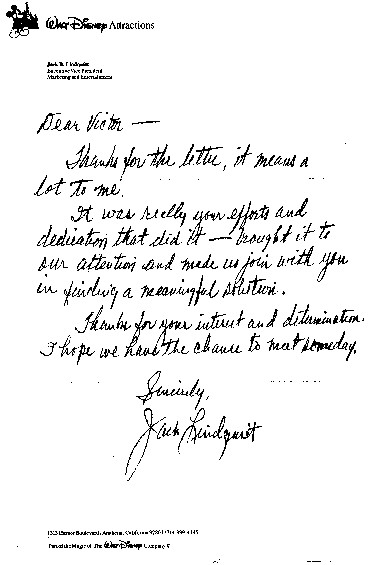 Walt Disney Attractions
Jack B. Lindquist
Executive Vice President
Marketing and Entertainment
Dear Victor —
Thanks for the letter, it means a
lot to me.
It was really your efforts and
dedication that did it — brought it to
our attention and made us join with you
in finding a meaningful solution.
Thanks for your interest and determination.
I hope we have the chance to meet someday.
Sincerely,
Jack Lindquist
1313 Harbor Boulevard, Anaheim, California
Part of the Magic of The Walt Disney Company